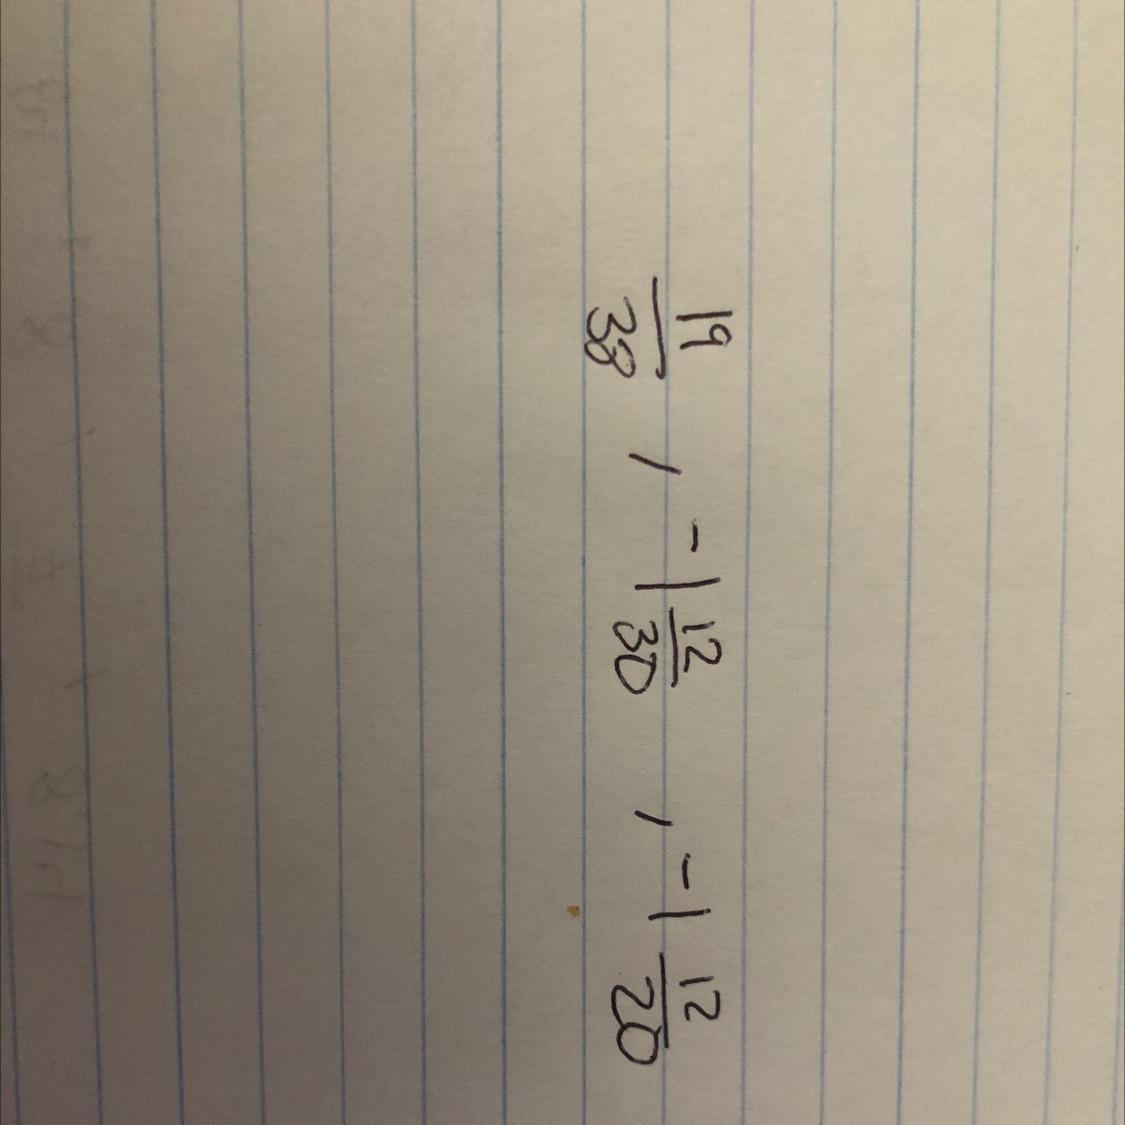 19/38 , -1 12/30 , -1 12/20